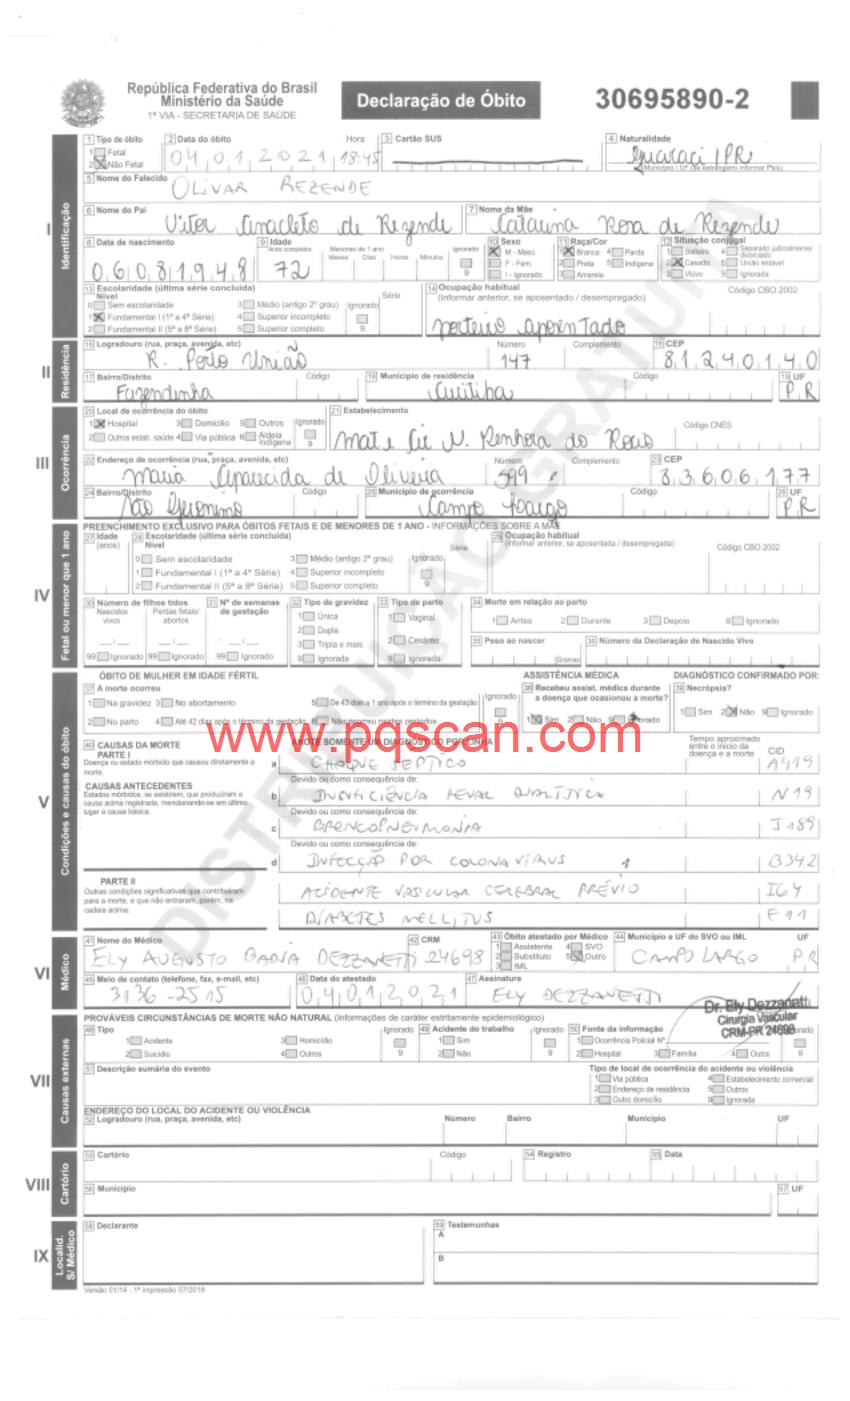 República Federativa do Brasil
Ministério da Saúde
1ª VIA - SECRETARIA DE SAÚDE
Declaração de Óbito
30695890-2
I Identificação
1 Tipo de óbito
1 Fetal
2 Não Fetal
2 Data do óbito Hora
04,01,2021 18:45
3 Cartão SUS
4 Naturalidade
Guaraci / PR
Município / UF (se estrangeiro informar País)
5 Nome do Falecido
OLIVAR REZENDE
6 Nome do Pai
Vitor Anacleto de Rezende
7 Nome da Mãe
Catarina Rosa de Rezende
8 Data de nascimento
06081948
9 Idade
Anos completos Menores de 1 ano Ignorado
Meses Dias Horas Minutos
72
9
10 Sexo
M - Masc.
F - Fem.
I - Ignorado
11 Raça/Cor
1 Branca 4 Parda
2 Preta 5 Indígena
3 Amarela
12 Situação conjugal
1 Solteiro 4 Separado judicialmente/divorciado
2 Casado 5 União estável
3 Viúvo 9 Ignorada
13 Escolaridade (última série concluída)
Nível Série
0 Sem escolaridade 3 Médio (antigo 2º grau) Ignorado
1 Fundamental I (1ª a 4ª Série) 4 Superior incompleto
2 Fundamental II (5ª a 8ª Série) 5 Superior completo 9
14 Ocupação habitual Código CBO 2002
(Informar anterior, se aposentado / desempregado)
porteiro aposentado
II Residência
15 Logradouro (rua, praça, avenida, etc) Número Complemento 16 CEP
R. Porto União 147 81240140
17 Bairro/Distrito Código 18 Município de residência Código 19 UF
Fazendinha Curitiba PR
III Ocorrência
20 Local de ocorrência do óbito
1 Hospital 3 Domicílio 5 Outros Ignorado
2 Outros estab. saúde 4 Via pública 6 Aldeia Indígena 9
21 Estabelecimento Código CNES
Mat e Cir N. Senhora do Rocio
22 Endereço de ocorrência (rua, praça, avenida, etc) Número Complemento 23 CEP
Maria Aparecida de Oliveira 599 83606177
24 Bairro/Distrito Código 25 Município de ocorrência Código 26 UF
São Jeronimo Campo Largo PR
IV Fetal ou menor que 1 ano
PREENCHIMENTO EXCLUSIVO PARA ÓBITOS FETAIS E DE MENORES DE 1 ANO - INFORMAÇÕES SOBRE A MÃE
27 Idade
(anos)
28 Escolaridade (última série concluída)
Nível Série
0 Sem escolaridade 3 Médio (antigo 2º grau) Ignorado
1 Fundamental I (1ª a 4ª Série) 4 Superior incompleto
2 Fundamental II (5ª a 8ª Série) 5 Superior completo 9
29 Ocupação habitual
(Informar anterior, se aposentada / desempregada) Código CBO 2002
30 Número de filhos tidos
Nascidos vivos Perdas fetais/abortos
99 Ignorado 99 Ignorado
31 Nº de semanas de gestação
99 Ignorado
32 Tipo de gravidez
1 Única
2 Dupla
3 Tripla e mais
9 Ignorada
33 Tipo de parto
1 Vaginal
2 Cesáreo
9 Ignorado
34 Morte em relação ao parto
1 Antes 2 Durante 3 Depois 9 Ignorado
35 Peso ao nascer
Gramas
36 Número da Declaração de Nascido Vivo
V Condições e causas do óbito
ÓBITO DE MULHER EM IDADE FÉRTIL
37 A morte ocorreu
1 Na gravidez 3 No abortamento 5 De 43 dias a 1 ano após o término da gestação Ignorado
2 No parto 4 Até 42 dias após o término da gestação 6 Não ocorreu nestes períodos 9
ASSISTÊNCIA MÉDICA
38 Recebeu assist. médica durante a doença que ocasionou a morte?
1 Sim 2 Não 9 Ignorado
DIAGNÓSTICO CONFIRMADO POR:
39 Necrópsia?
1 Sim 2 Não 9 Ignorado
www.pqscan.com
40 CAUSAS DA MORTE ANOTE SOMENTE UM DIAGNÓSTICO POR LINHA
PARTE I
Doença ou estado mórbido que causou diretamente a morte.
Tempo aproximado entre o início da doença e a morte CID
a CHOQUE SÉPTICO A419
CAUSAS ANTECEDENTES
Estados mórbidos, se existirem, que produziram a causa acima registrada, mencionando-se em último lugar a causa básica.
Devido ou como consequência de:
b INSUFICIÊNCIA RENAL DIALÍTICA N19
Devido ou como consequência de:
c BRONCOPNEUMONIA J189
Devido ou como consequência de:
d INFECÇÃO POR CORONAVÍRUS B342
PARTE II
Outras condições significativas que contribuíram para a morte, e que não entraram, porém, na cadeia acima.
ACIDENTE VASCULAR CEREBRAL PRÉVIO I64
DIABETES MELLITUS E11
VI Médico
41 Nome do Médico
ELY AUGUSTO BADIA DEZZANETTI
42 CRM
24698
43 Óbito atestado por Médico
1 Assistente 4 SVO
2 Substituto 5 Outro
3 IML
44 Município e UF do SVO ou IML UF
CAMPO LARGO PR
45 Meio de contato (telefone, fax, e-mail, etc)
3136-2515
46 Data do atestado
04012021
47 Assinatura
ELY DEZZANETTI
Cirurgia Vascular
CRM-PR 24698
VII Causas externas
PROVÁVEIS CIRCUNSTÂNCIAS DE MORTE NÃO NATURAL (Informações de caráter estritamente epidemiológico)
48 Tipo
1 Acidente 3 Homicídio Ignorado
2 Suicídio 4 Outros 9
49 Acidente do trabalho
1 Sim Ignorado
2 Não 9
50 Fonte da informação
1 Ocorrência Policial Nº
2 Hospital 3 Família 4 Outra 9
51 Descrição sumária do evento
Tipo de local de ocorrência do acidente ou violência
1 Via pública 4 Estabelecimento comercial
2 Endereço de residência 5 Outros
3 Outro domicílio 9 Ignorada
ENDEREÇO DO LOCAL DO ACIDENTE OU VIOLÊNCIA
52 Logradouro (rua, praça, avenida, etc) Número Bairro Município UF
VIII Cartório
53 Cartório Código 54 Registro 55 Data
56 Município 57 UF
IX Localid. S/ Médico
58 Declarante
59 Testemunhas
A
B
Versão 01/14 - 1ª impressão 07/2019
DISTRIBUIÇÃO GRATUITA